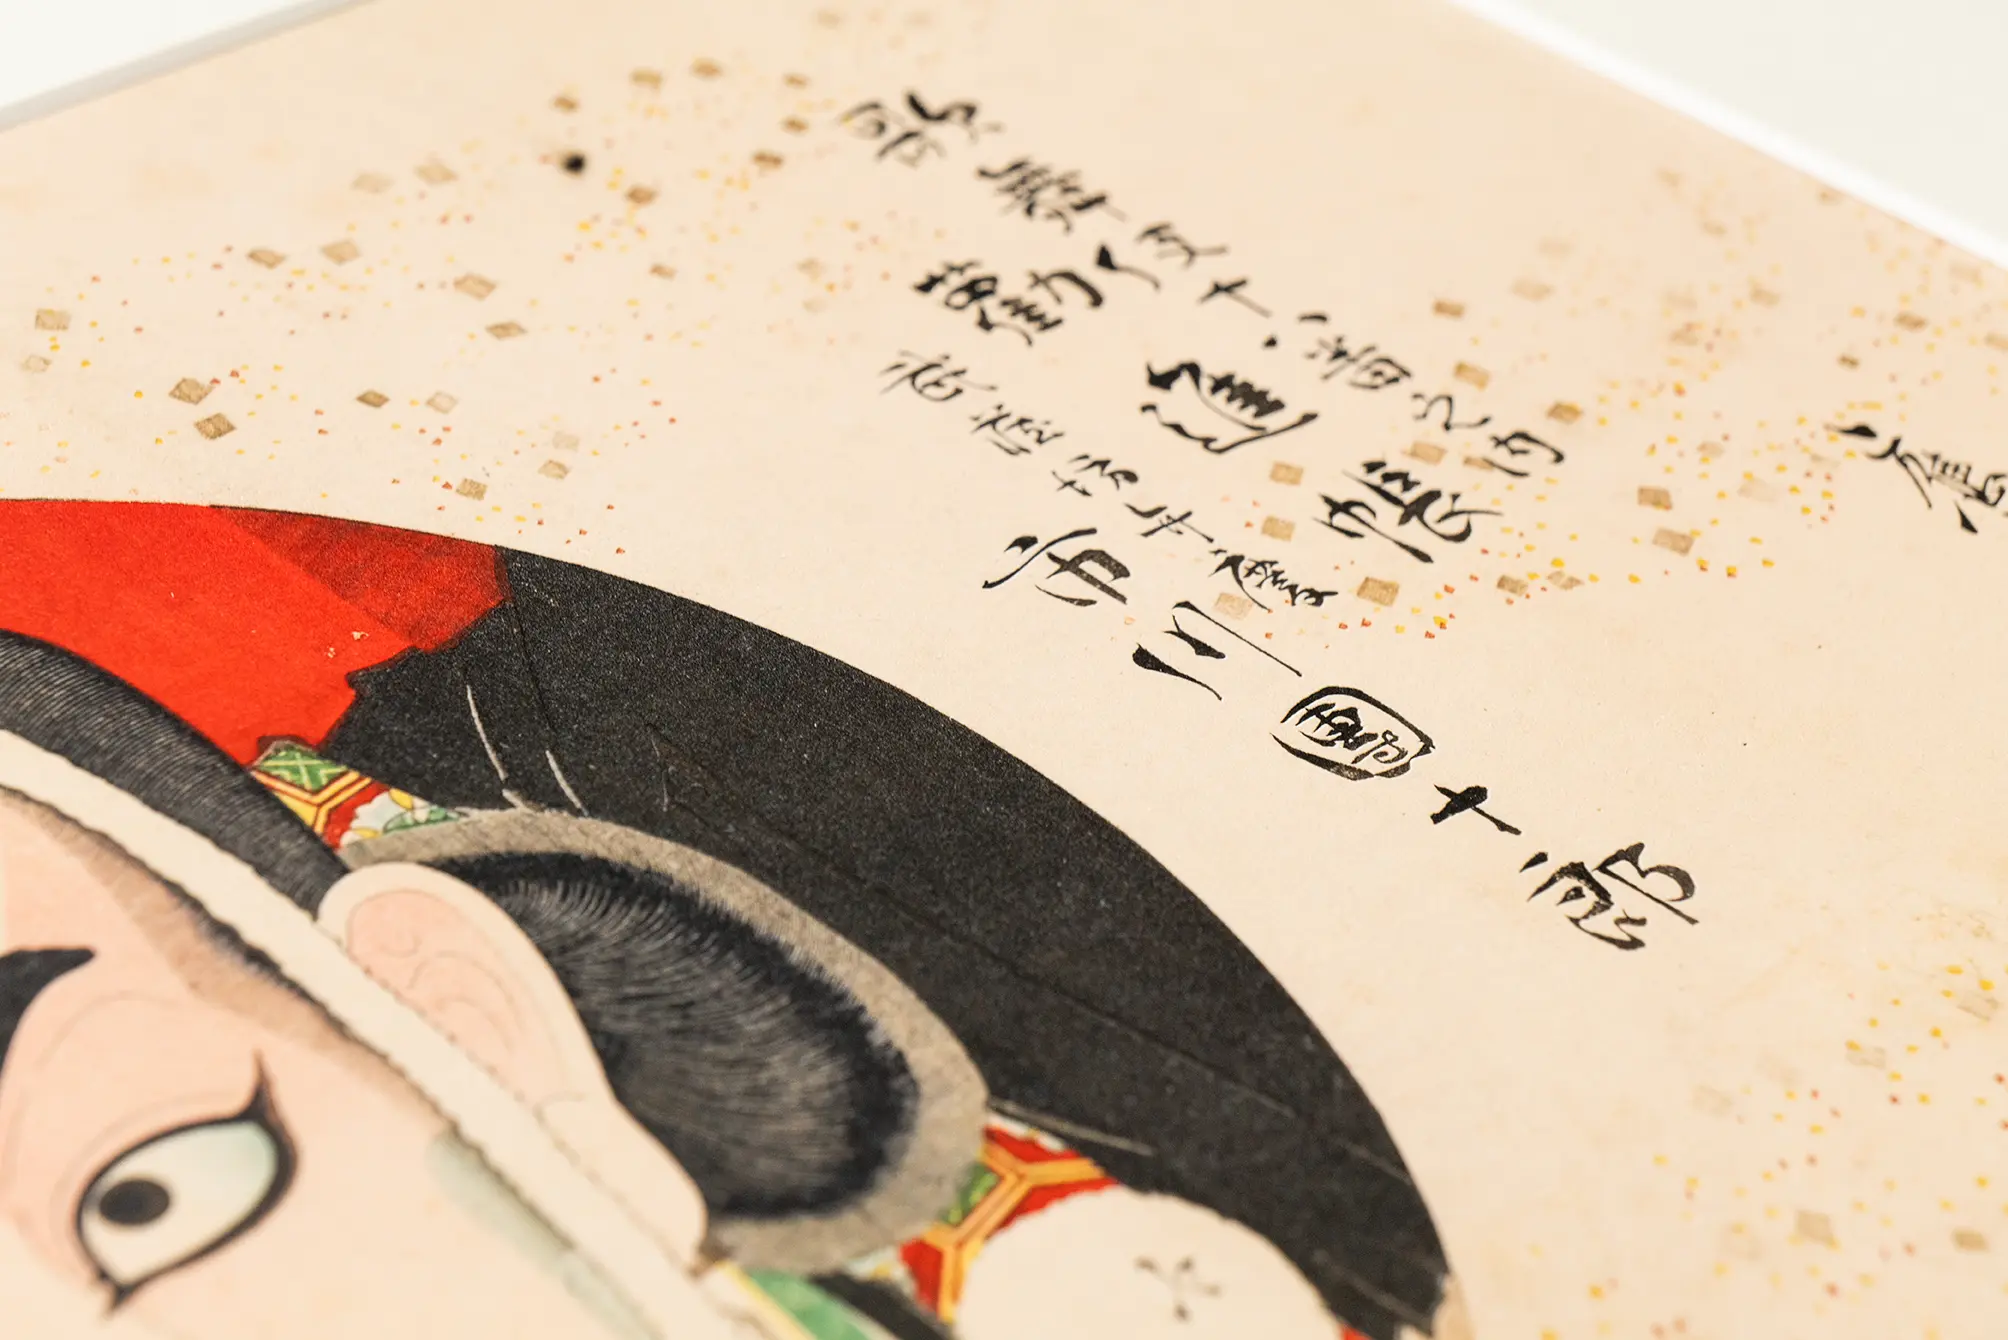 歌舞伎十八番之内
勸進帳
武蔵坊弁慶
市川團十郎